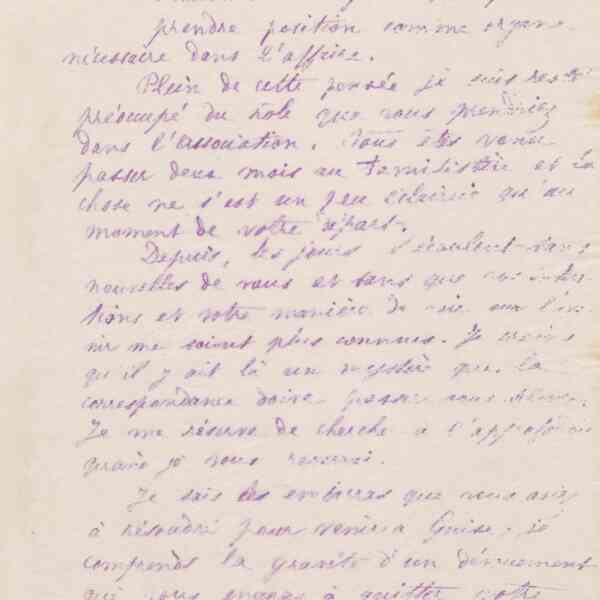 prendre position comme organe
nécessaire dans l'affaire.
Plein de cette pensée je suis resté
préoccupé du rôle que vous prendriez
dans l'association. Vous êtes venu
passer deux mois au Familistère et la
chose ne s'est un peu éclaircie qu'au
moment de votre départ.
Depuis, les jours s'écoulent sans
nouvelles de vous et sans que vos inten-
tions et votre manière de voir sur l'ave-
nir me soient plus connues. Je crois
qu'il y ait là un mystère que la
correspondance doive laisser sous
Je me réserve de chercher à l'approfondir
quand je vous reverrai.
Je sais les embarras que vous avez
à résoudre pour venir à Guise, je
comprends la gravité d'un dénuement
qui vous engage à quitter votre